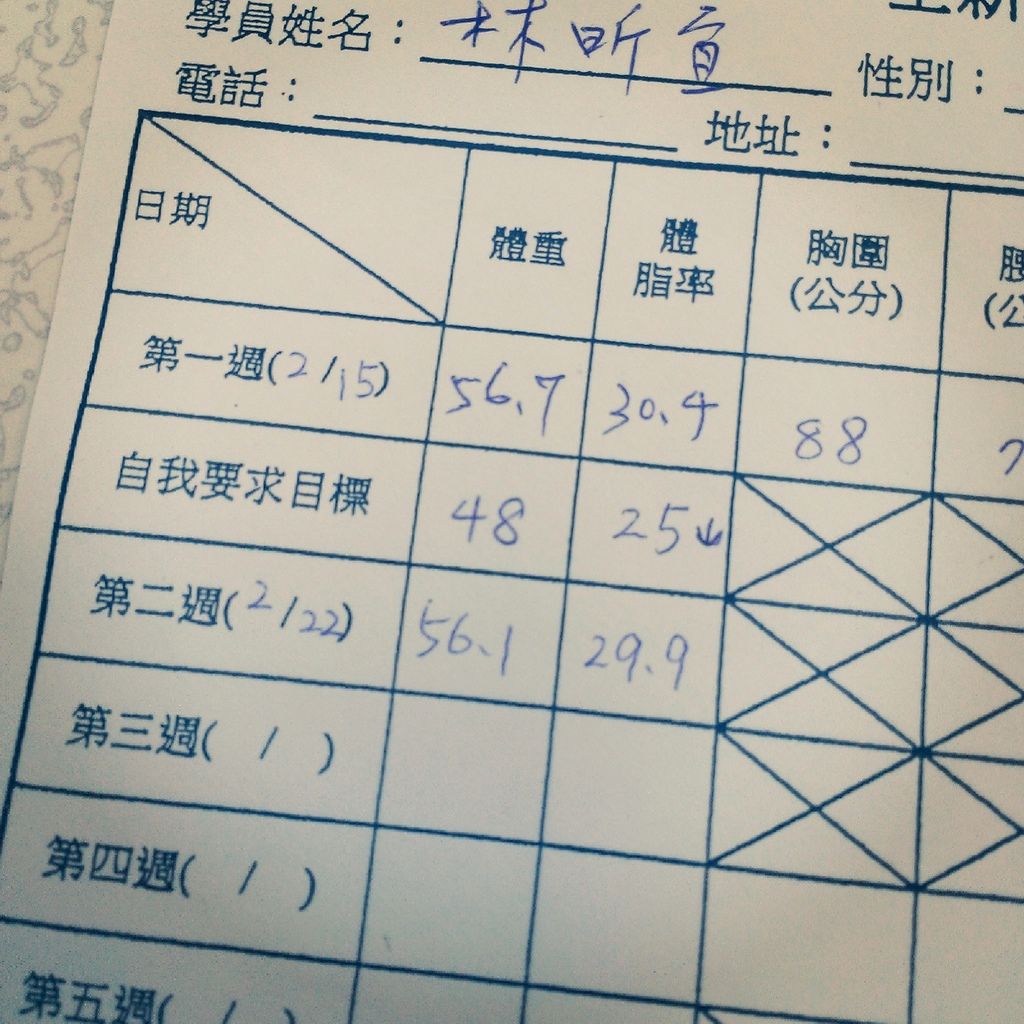 學員姓名：林昕宜 性別：
電話： 地址：
日期 體重 體脂率 胸圍(公分)
第一週(2/15) 56.7 30.4 88
自我要求目標 48 25↓
第二週(2/22) 56.1 29.9
第三週( / )
第四週( / )
第五週( / )